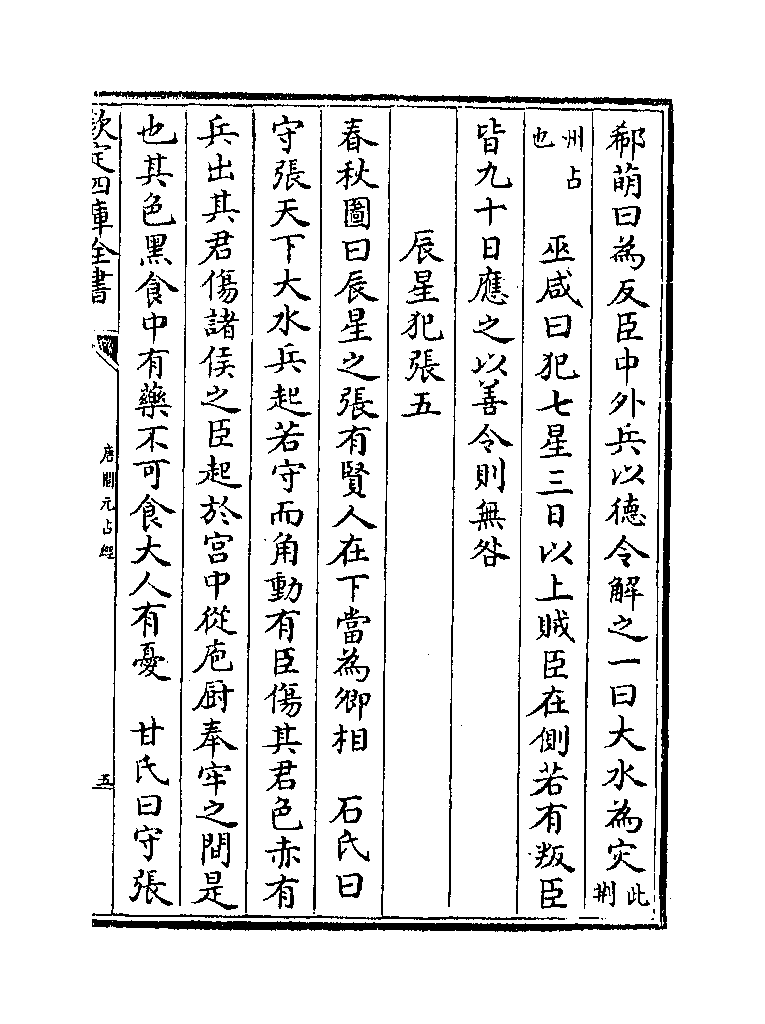 郗萌曰為反臣中外兵以德令解之一曰大水為灾此荆
州占也　巫咸曰犯七星三日以上賊臣在側若有叛臣
皆九十日應之以善令則無咎
辰星犯張五
春秋圖曰辰星之張有賢人在下當為卿相　石氏曰
守張天下大水兵起若守而角動有臣傷其君色赤有
兵出其君傷諸侯之臣起於宮中從庖厨奉牢之間是
也其色黑食中有藥不可食大人有憂　甘氏曰守張
欽定四庫全書
唐開元占經
五